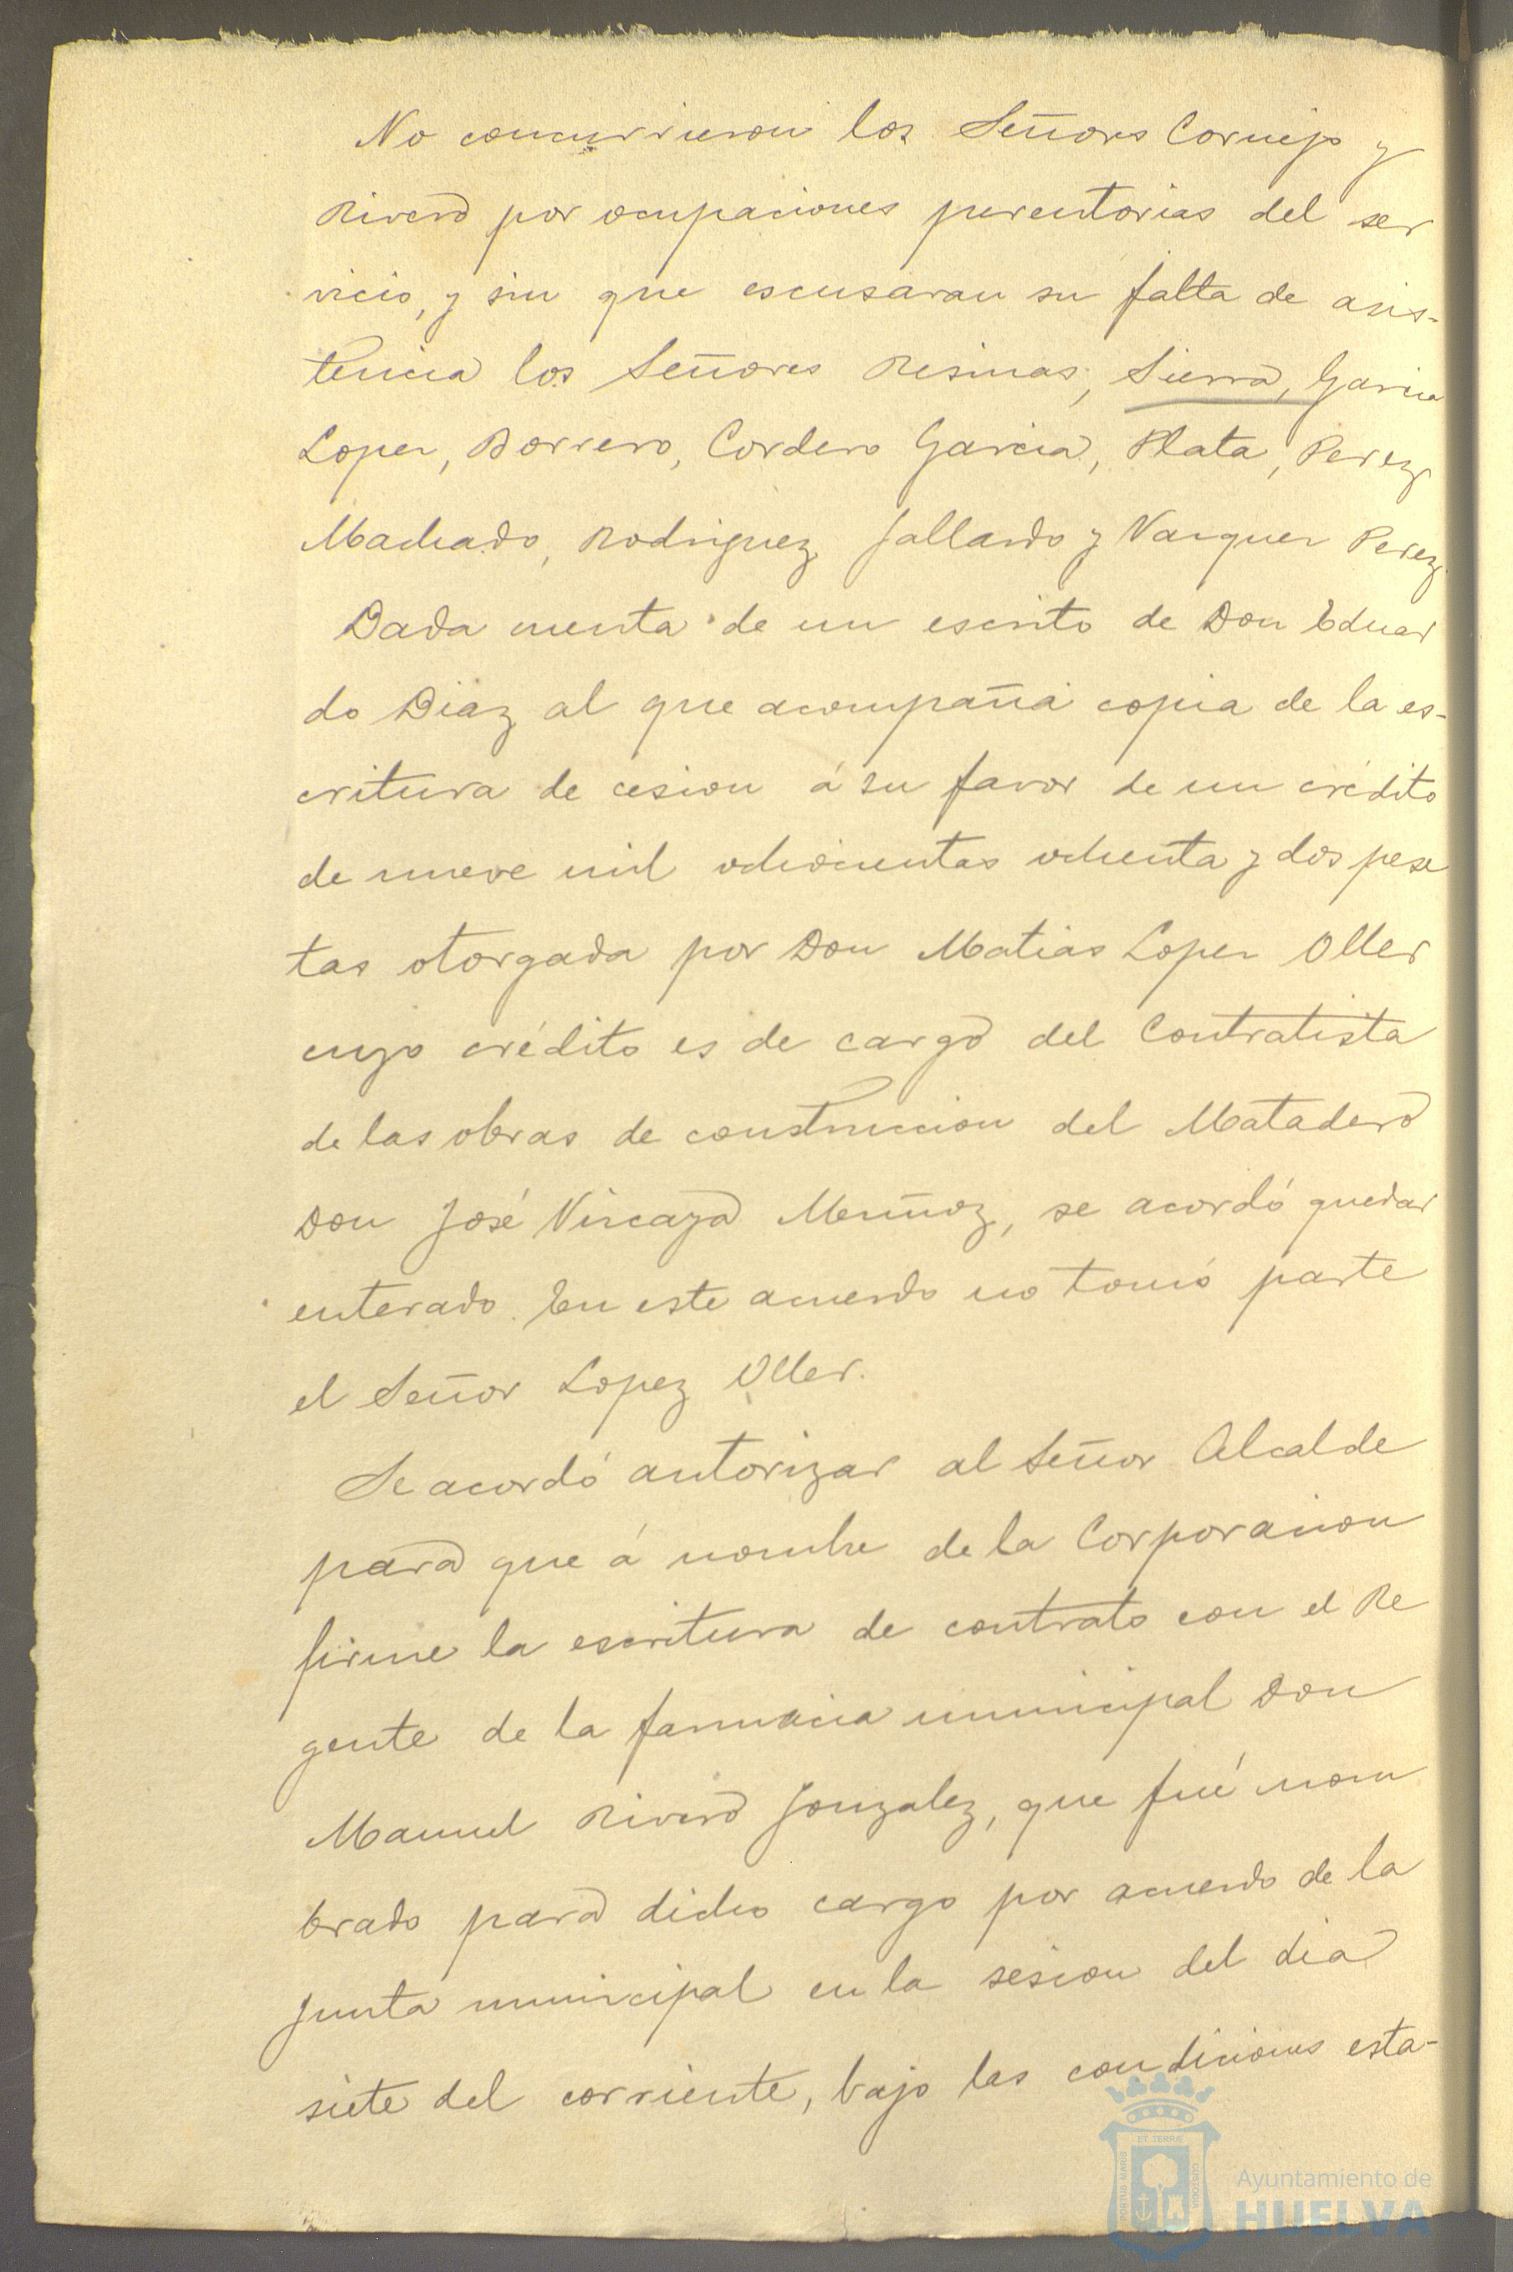 No concurrieron los Señores Cornejo y
Rivero por ocupaciones perentorias del ser
vicio, y sin que escusaran su falta de asis-
tencia los Señores Resinas, Sierra, Garcia
Lopez, Borrero, Cordero Garcia, Plata, Perez
Machado, Rodriguez Gallardo y Vazquez Perez.
Dada cuenta de un escrito de Don Eduar
do Diaz al que acompaña copia de la es-
critura de cesion á su favor de un crédito
de nueve mil ochocientas ochenta y dos pese
tas otorgada por Don Matias Lopez Oller
cuyo crédito es de cargo del Contratista
de las obras de construccion del Matadero
Don José Vizcaya Muñoz, se acordó quedar
enterado. En este acuerdo no tomó parte
el Señor Lopez Oller.
Se acordó autorizar al Señor Alcalde
para que á nombre de la Corporacion
firme la escritura de contrato con el Re
gente de la farmacia municipal Don
Manuel Rivero Gonzalez, que fué nom
brado para dicho cargo por acuerdo de la
Junta municipal en la sesion del dia
siete del corriente, bajo las condiciones esta-
ET TERRÆ
PORTUS MARIS
CUSTODIA
Ayuntamiento de
HUELVA